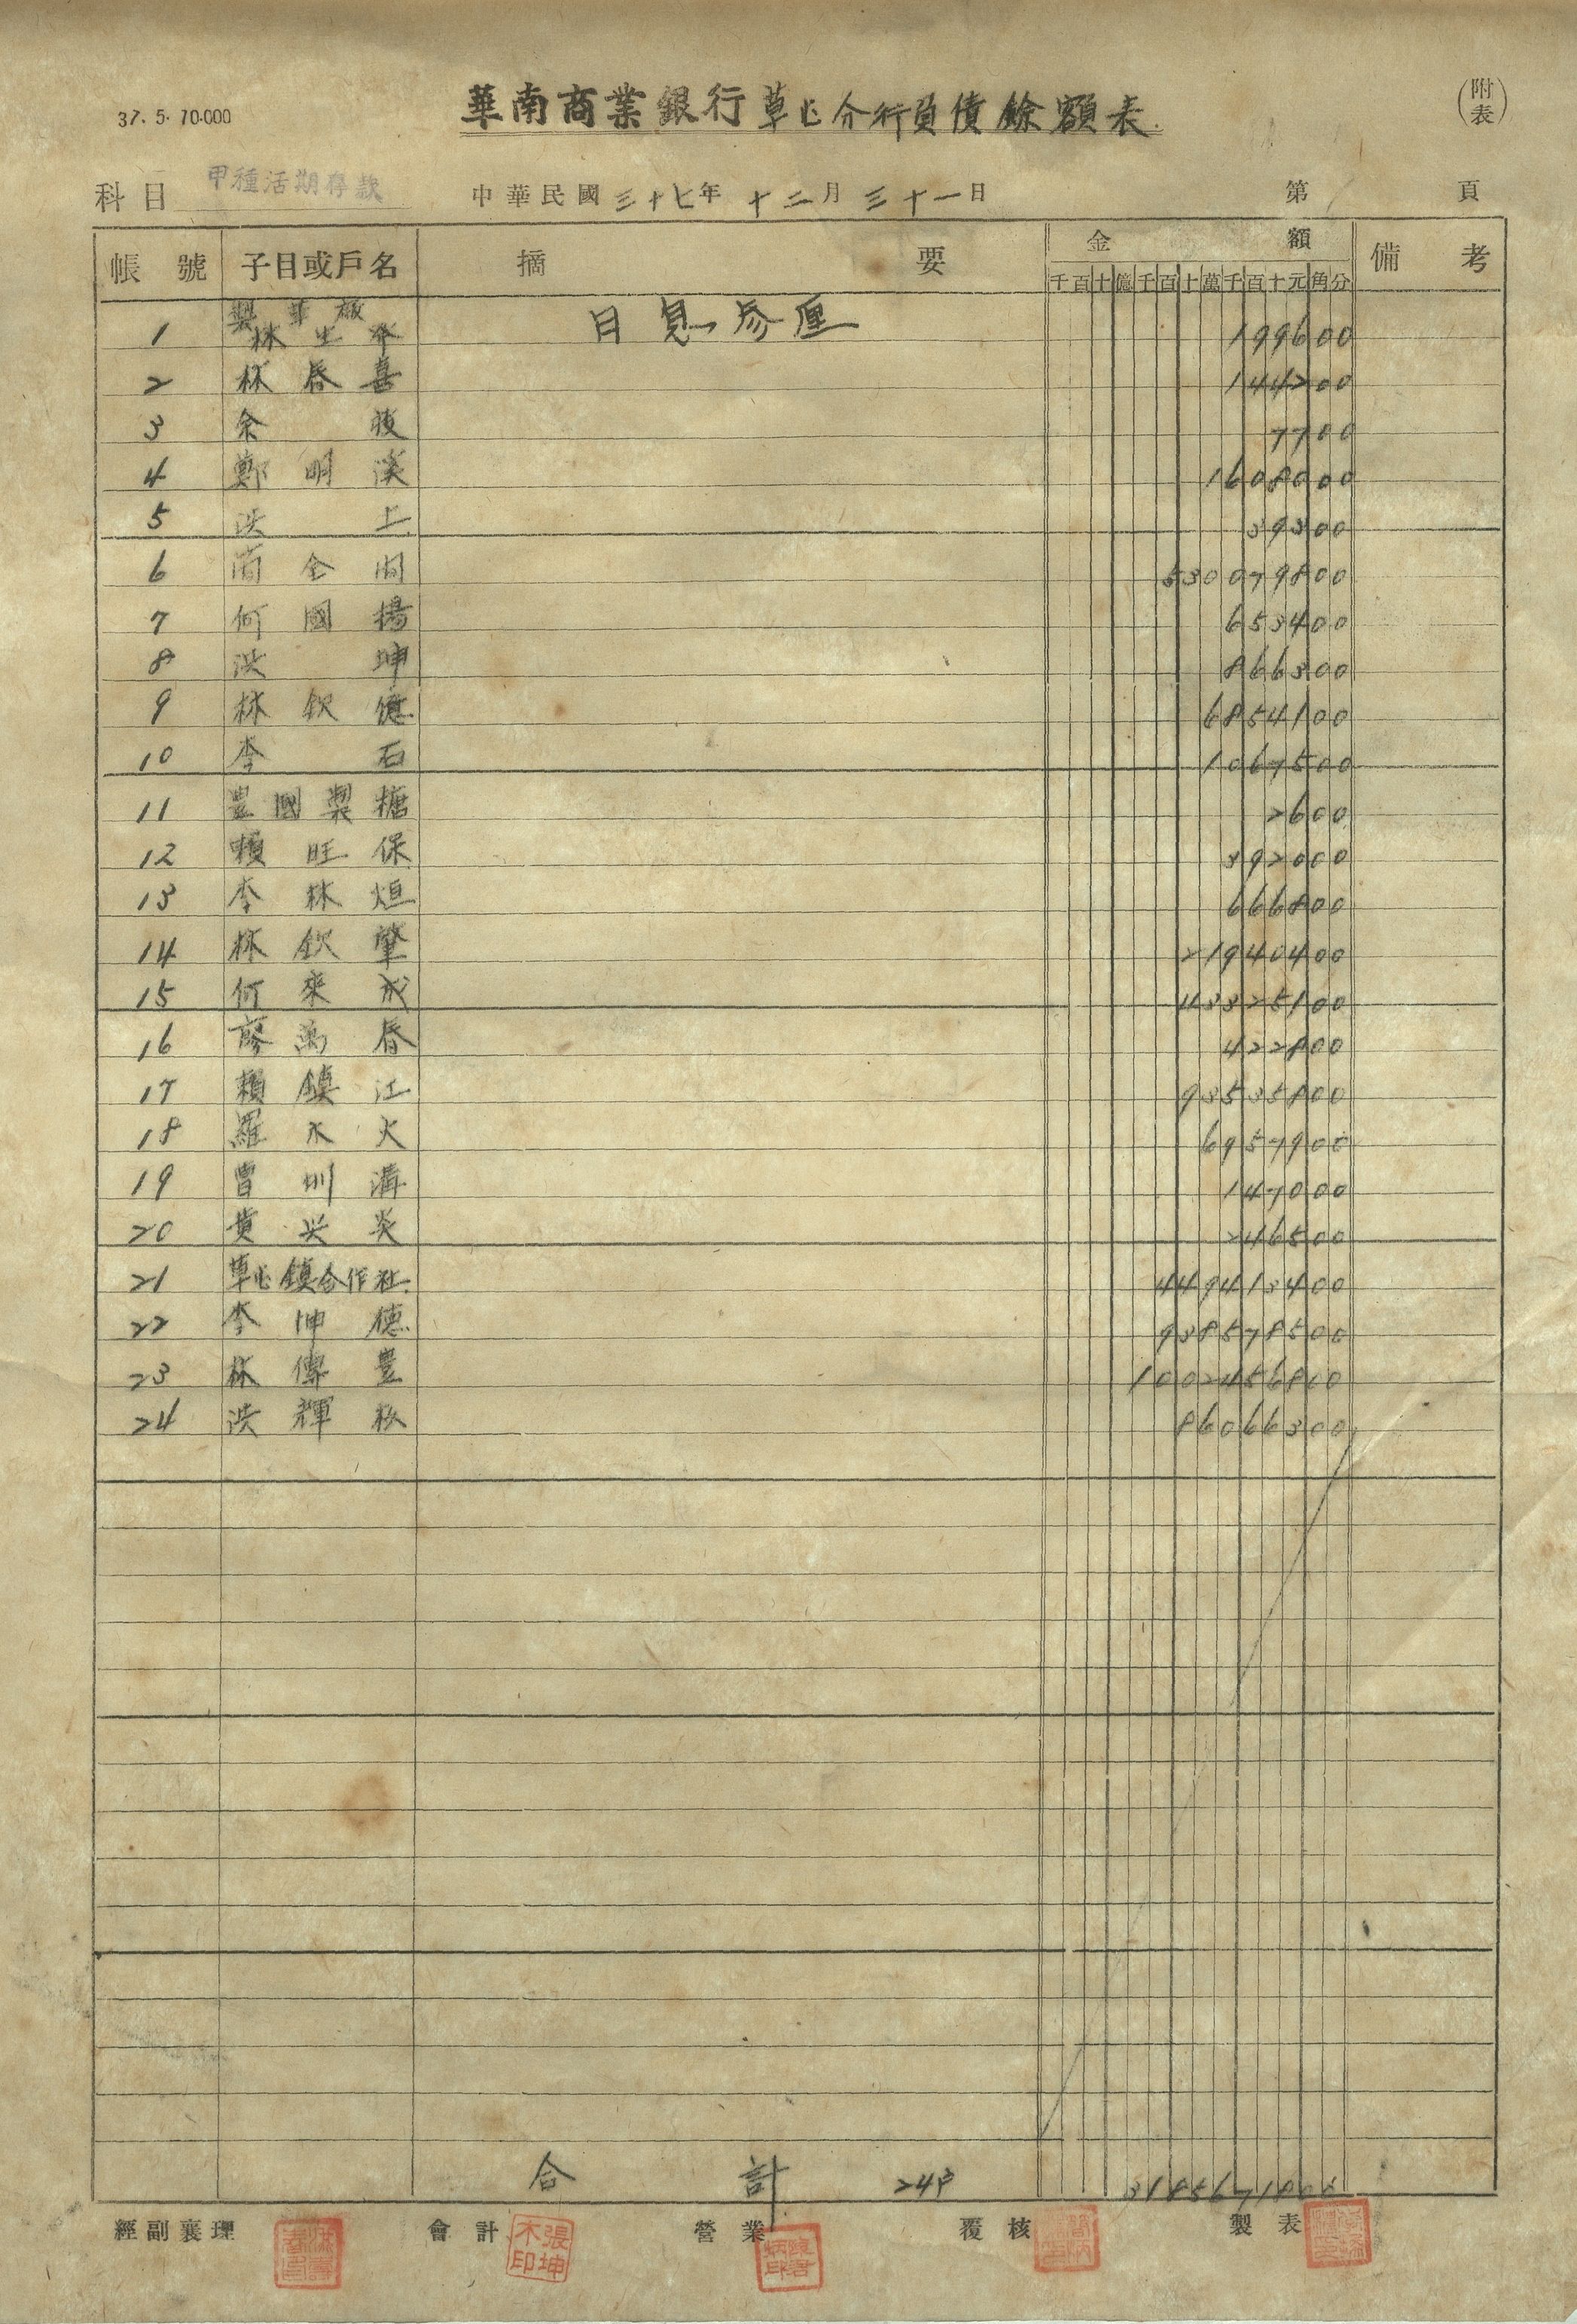 37. 5. 10.000
華南商業銀行草屯分行負債餘額表
(附表)
科目 甲種活期存款 中華民國三十七年十二月三十一日 第 頁
帳號 子目或戶名 摘要 金額 備考
千百十億千百十萬千百十元角分
製
1 林生 日息叁厘 199600
2 林春喜 144200
3 7700
4 鄭明溪 1608000
5 洪上 39300
6 簡全 530079800
7 何國揚 653400
8 洪坤 866300
9 林欽億 6854100
10 李石 1067500
11 豊國製糖 2600
12 賴旺保 392000
13 李林烜 666800
14 林欽肇 21940400
15 何來成 43325100
16 廖萬春 422800
17 賴鎮江 93535800
18 羅木火 6957900
19 曾圳溝 147000
20 黄炎 246500
21 草屯鎮合作社 449413400
22 李坤德 938578500
23 林傳豊 1002456800
24 洪輝 86066300
合計 24戶 3185671800
經副襄理 會計 營業 覆核 製表
張坤木印